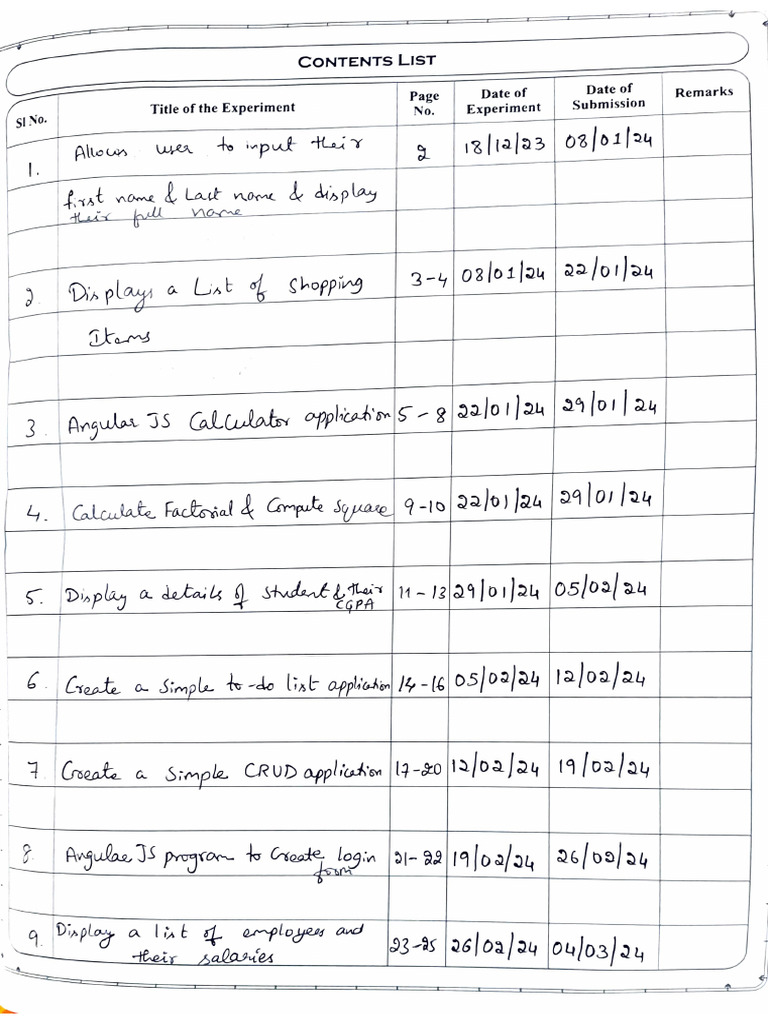 CONTENTS LIST
Sl No. Title of the Experiment Page No. Date of Experiment Date of Submission Remarks
1. Allows user to input their 2 18/12/23 08/01/24
first name & Last name & display
their full name
2. Displays a List of Shopping 3-4 08/01/24 22/01/24
Items
3. Angular JS Calculator application 5-8 22/01/24 29/01/24
4. Calculate Factorial & Compute Square 9-10 22/01/24 29/01/24
5. Display a details of student & their 11-13 29/01/24 05/02/24
CGPA
6. Create a simple to-do list application 14-16 05/02/24 12/02/24
7. Create a simple CRUD application 17-20 12/02/24 19/02/24
8. Angular JS program to Create login 21-22 19/02/24 26/02/24
form
9. Display a list of employees and 23-25 26/02/24 04/03/24
their salaries